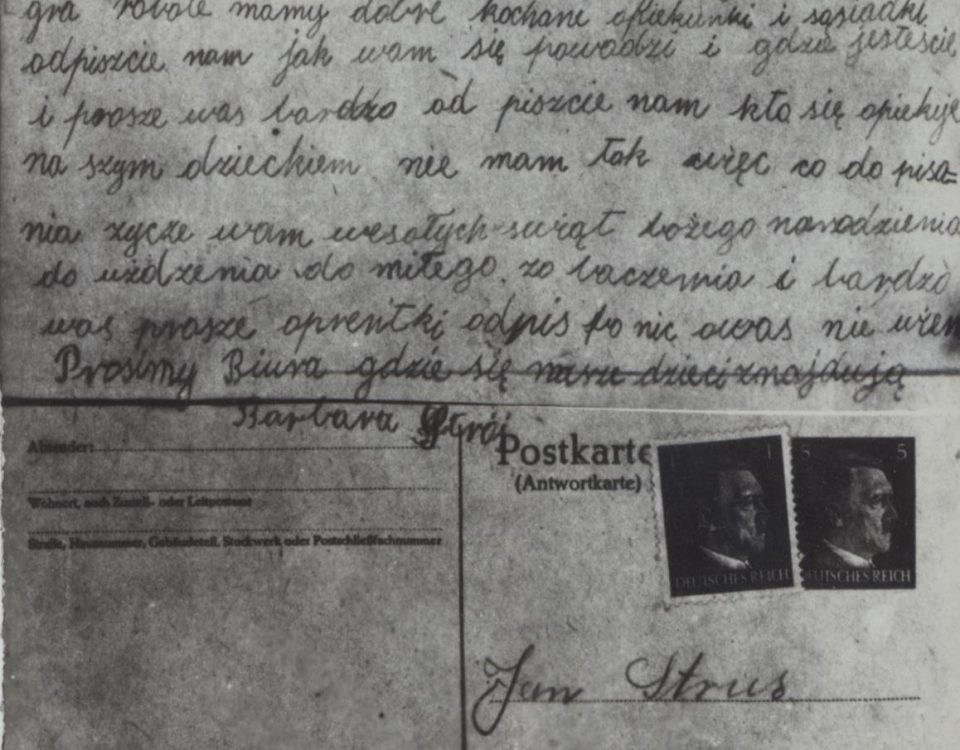 gra robote mamy dobre kochane opiekunki i sąsiadki
odpiszcie nam jak wam się powodzi i gdzie jesteście
i prosze was bardzo od piszcie nam kto się opiekuje
na szym dzieckiem nie mam tak więc co do pisa=
nia zycze wam wesołych swiąt bożego narodzienia
do uźdzenia do miłego zo baczemia i bardzo
was prosze oprentki odpis bo nic owas nie wiem
Prosimy Biura gdzie się nasze dzieci znajdują
Barbara
Absender:
Wohnort, auch Zustell- oder Leitpostamt
Straße, Hausnummer, Gebäudeteil, Stockwerk oder Postschließfachnummer
Postkarte
(Antwortkarte)
1 1
DEUTSCHES REICH
5 5
DEUTSCHES REICH
Jan Strus